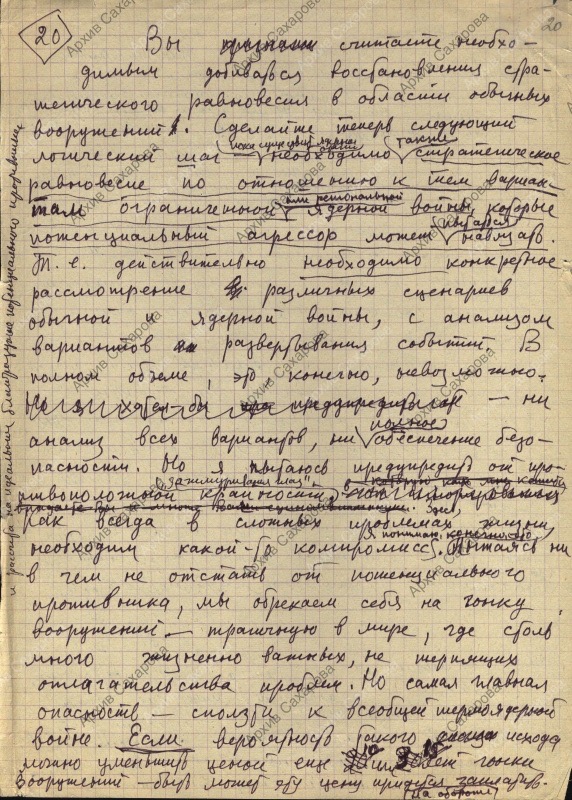 20
20
Вы считаете необхо-
димым добиваться восстановления стра-
тегического равновесия в области обычных
вооружений. Сделайте теперь следующий
логический шаг – пока существует ядерное необходимо также стратегическое
равновесие по отношению к тем вариан-
там ограниченной или региональной ядерной войны, которые
потенциальный агрессор может пытаться навязать.
Т. е. действительно необходимо конкретное
рассмотрение различных сценариев
обычной и ядерной войны, с анализом
вариантов развертывания событий. В
полном объеме, это конечно, невозможно.
– ни
анализ всех вариантов, ни полное обеспечение безо-
пасности. Но я пытаюсь предупредить от про-
тивоположной крайности "зажмуривания глаз"
и расчета на идеальное благоразумие потенциального противника
Как всегда в сложных проблемах жизни
необходим какой-то компромисс. Я понимаю, конечно, что пытаясь ни
в чем не отстать от потенциального
противника, мы обрекаем себя на гонку
вооружений – трагичную в мире, где столь
много жизненно важных, не терпящих
отлагательства проблем. Но самая главная
опасность – сползти к всеобщей термоядерной
войне. Если вероятность такого исхода
можно уменьшить ценой еще 10 или 15 лет гонки
вооружений – быть может эту цену придется заплатить.
(на обороте)
Архив Сахарова